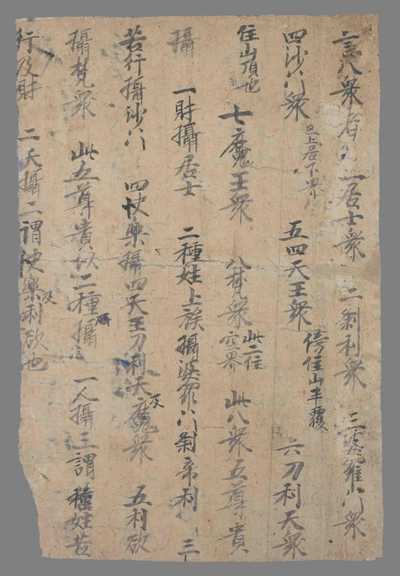 言八衆者 一居士衆 二剎利衆 三婆羅門衆
四沙門衆 已上居下界 五四天王衆 傍住山半腹 六刀利天衆
住山頂也 七魔王衆 八梵衆 此二住空界 此八衆五尊貴
攝 一財攝居士 二種姓上族攝婆羅門剎帝利 三
苦行攝沙門 四快樂攝四天王刀利天及魔衆 五利欲
攝梵衆 此五尊貴以二種攝 一人攝三謂種姓苦
行及財 二天攝二謂快樂及利欲也